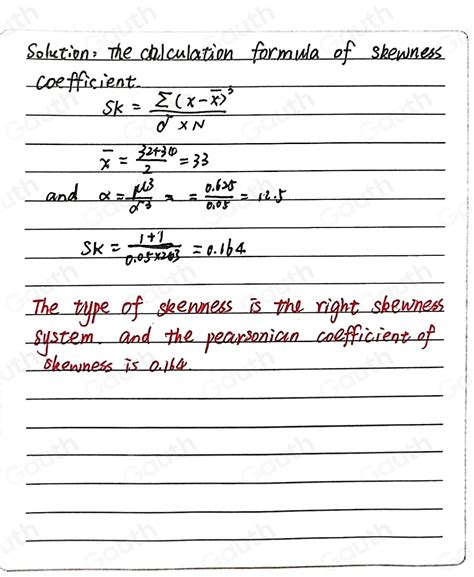 Solution: The calculation formula of skewness
coefficient.
Sk = Σ(x-x̄)³ / σ³ × N
x̄ = 32+34 / 2 = 33
and α = μ3 / σ³ = = 0.625 / 0.05 = 12.5
Sk = 1+1 / 0.05×263 = 0.164
The type of skewness is the right skewness
system. and the pearsonian coefficient of
skewness is 0.164.
Gauth